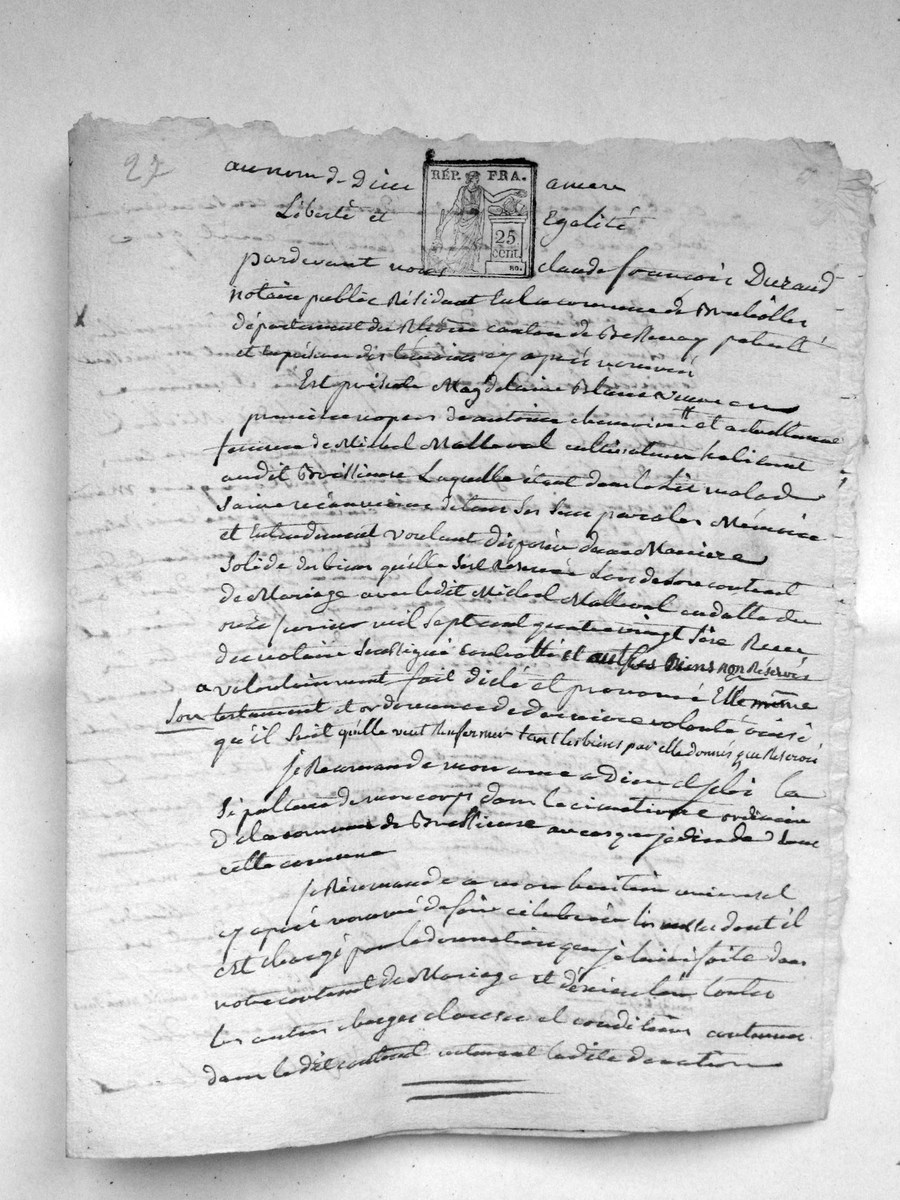 27
au nom de Dieu amen
RÉP. FRA.
25
cent.
Liberté et Egalité
pardevant nous claude françois Durand
notaire public Résidant en la commune de
département du Rhône canton de Bessenay
et en présence des témoins cy après
Est présente Magdelaine Blanc veuve en
premiere nopces de antoine et actuellement
femme de Michel Malleval cultivateur habitant
audit Laquelle étant dans lit malade
saine de tous ses sens parolle Mémoire
et Entendement voulant disposer d'une Maniere
solide des biens qu'elle s'est Réservée Lors de son contrat
de Mariage avec ledit Michel Malleval en datte du
onze mil sept cent quatre vingt Reçu
du notaire soussigné et autres Biens non Réservés
a volontairement fait dicté et prononcé Elle même
son testament et ordonnance de derniere volonté
qu'il suit qu'elle veut Renfermer tant les biens par elle donnés que Réservés
je Recommande mon ame a dieu la
sépulture de mon corps dans le cimetiere ordinaire
De la commune de au cas que je décède dans
cette commune
je Récommande a mon héritier universel
cy après nommé de faire célébrer les messes dont il
est chargé par la donnation que je lui ai faite dans
notre contrat de Mariage et toutes
les autres charges clauses et conditions contenues
dans le dit contrat contenant ladite donation